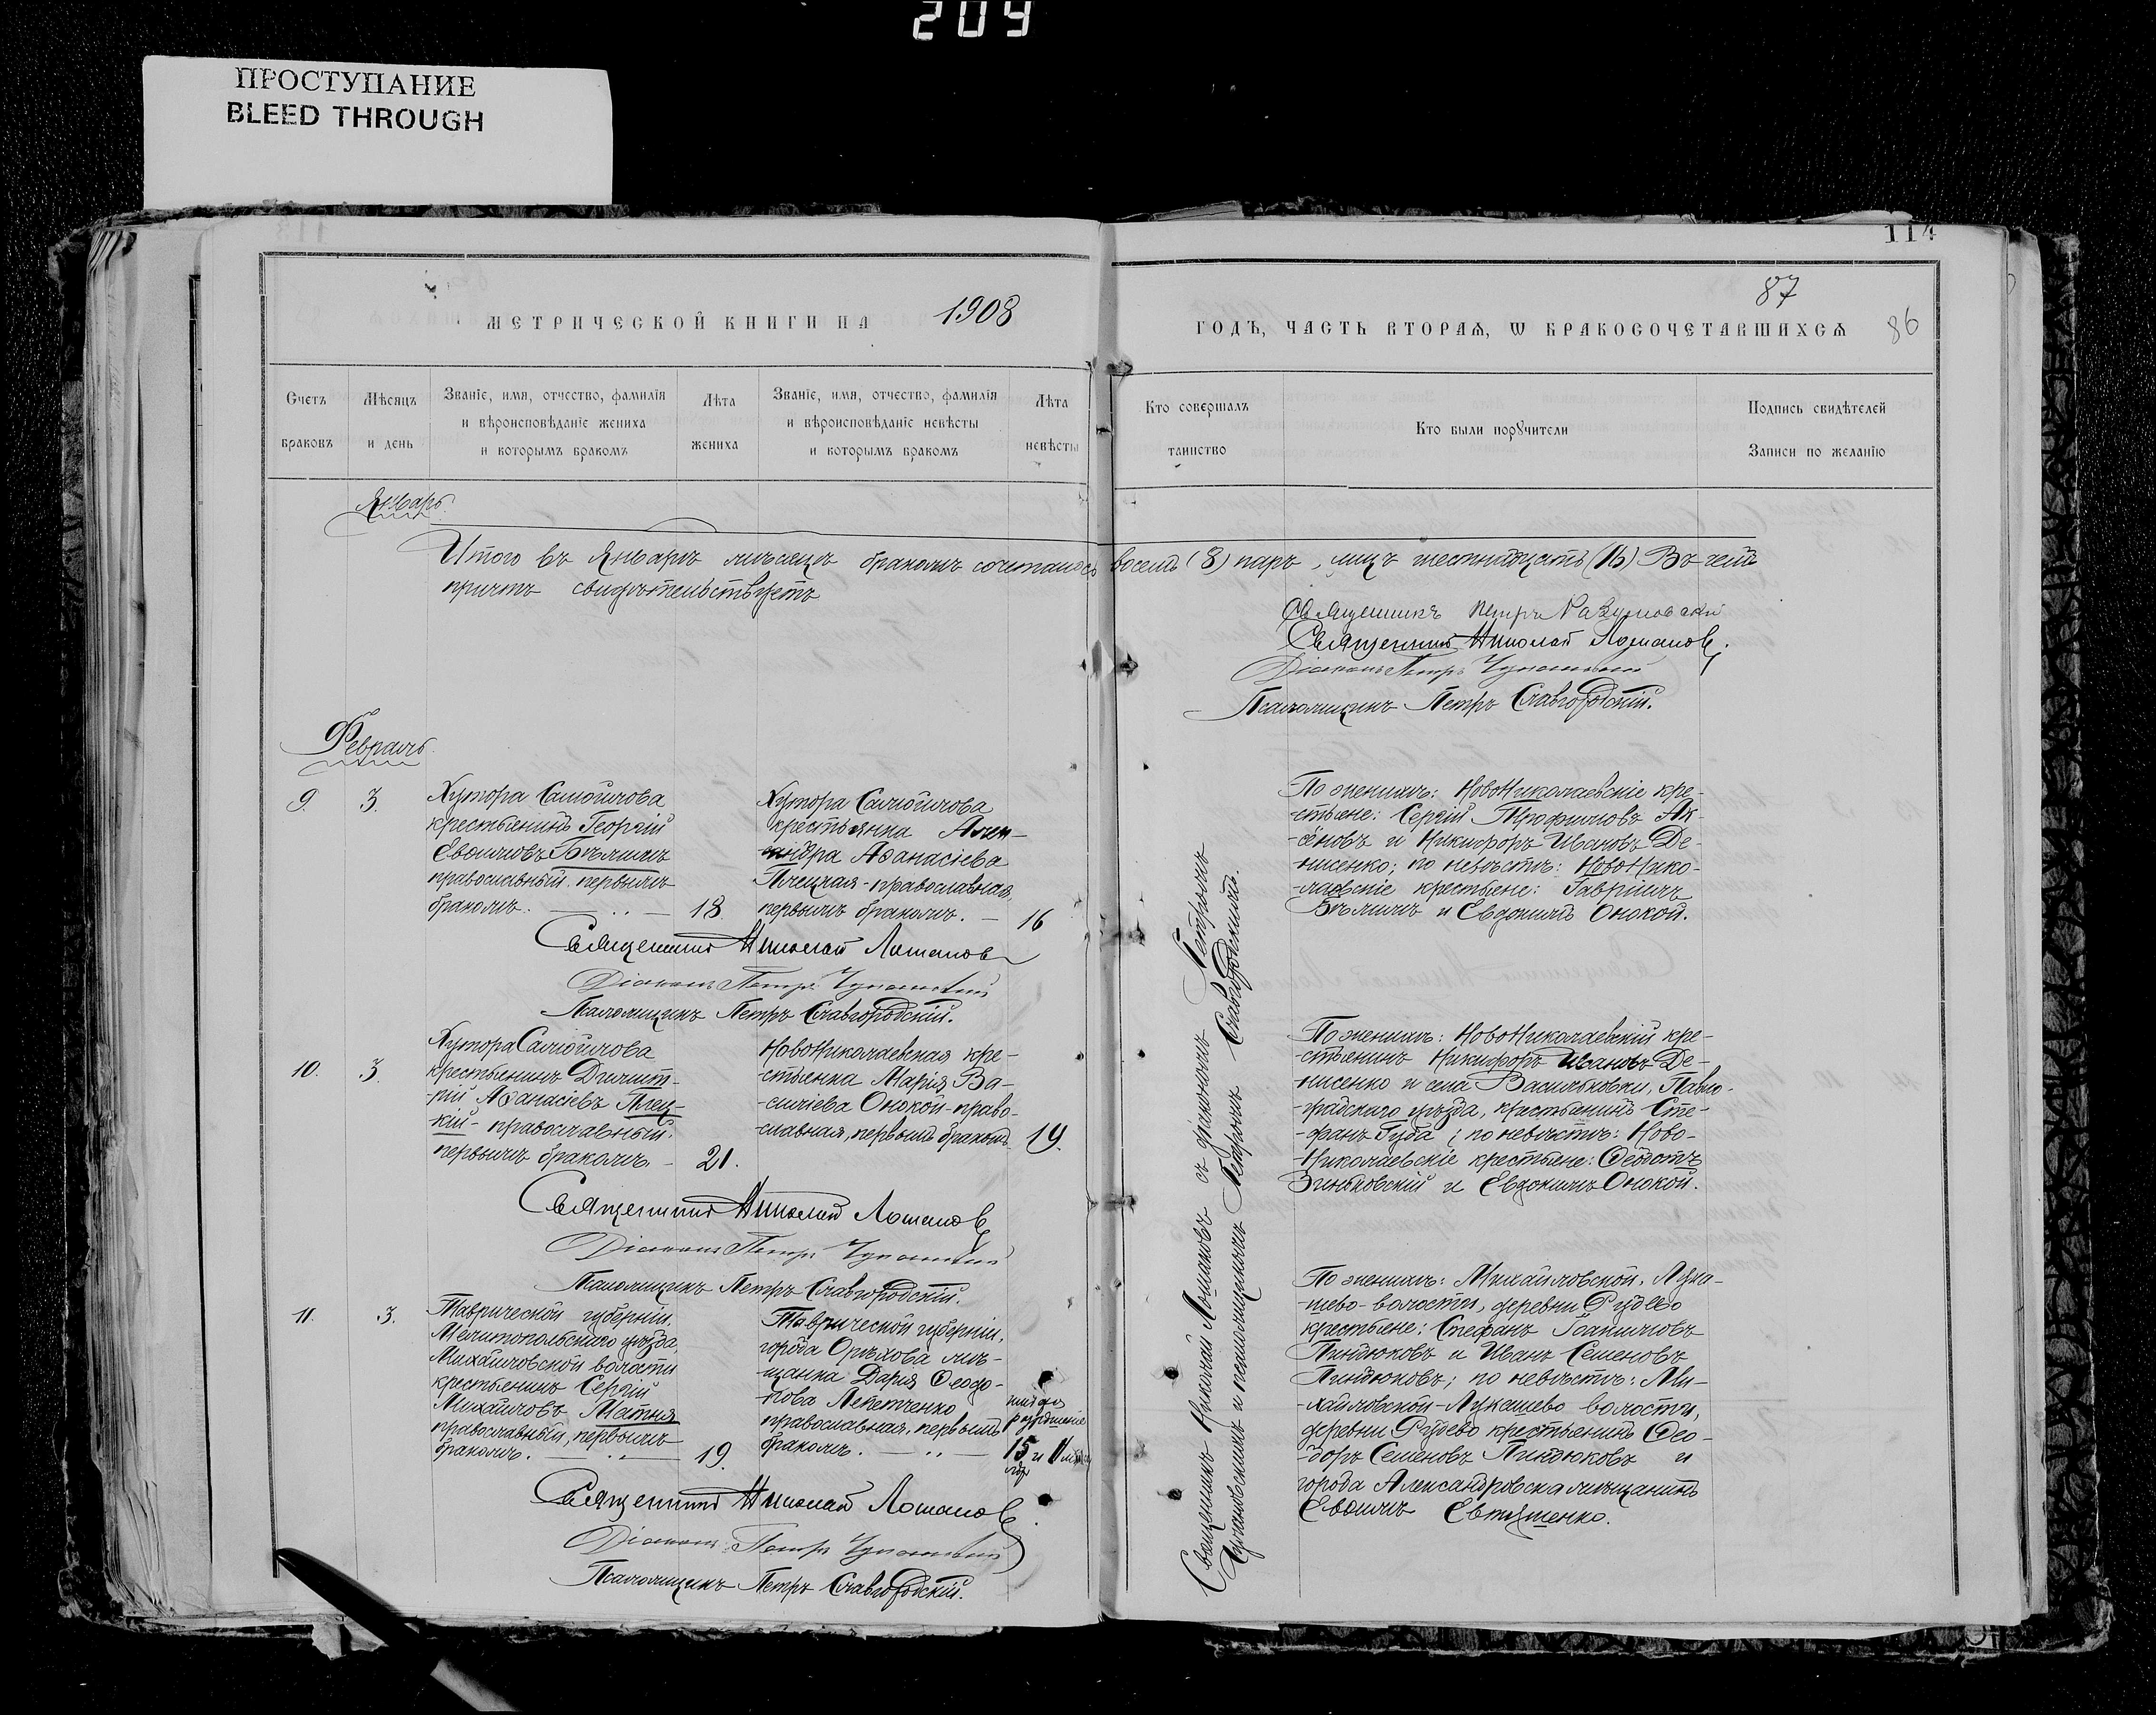 209
ПРОСТУПАНИЕ
BLEED THROUGH
114
87
86
МЕТРИЧЕСКОЙ КНИГИ НА 1908
ГОДЪ, ЧАСТЬ ВТОРАЯ, Ѡ БРАКОСОЧЕТАВШИХСЯ
Счетъ
браковъ
Мѣсяцъ
и день
Званіе, имя, отчество, фамилія
и вѣроисповѣданіе жениха
и которымъ бракомъ
Лѣта
жениха
Званіе, имя, отчество, фамилія
и вѣроисповѣданіе невѣсты
и которымъ бракомъ
Лѣта
невѣсты
Кто совершалъ
таинство
Кто были порꙋчители
Подпись свидѣтелей
Записи по желанію
Январь.
Итого въ Январѣ мѣсяцѣ бракомъ сочеталось восемь (8) паръ, лицъ шестнадцать (16) Въ чемъ
причтъ свидѣтельствуетъ
Священникъ Петръ Разумовскій
Священникъ Николай Лошаковъ.
Діаконъ Петръ
Псаломщикъ Петръ Славгородскій.
Февраль.
9. 3.
Хутора Самойлова
крестьянинъ Георгій
Евѳимовъ Бѣлимъ
православный. первымъ
бракомъ. 18.
Хутора Самойлова
крестьянка Алек-
сандра Аѳанасіева
Плецкая - православная,
первымъ бракомъ. 16
По женихѣ: НовоНиколаевскіе кре-
-стьяне: Сергій Трофимовъ Ак-
-сёновъ и Никифоръ Ивановъ Де-
-нисенко; по невѣстѣ: НовоНико-
-лаевскіе крестьяне: Гавріилъ
Бѣлимъ и Евдокимъ Онокой.
Священникъ Николай Лошаковъ
Діаконъ Петръ
Псаломщикъ Петръ Славгородскій.
10. 3.
Хутора Самойлова
крестьянинъ Димит-
-рій Аѳанасіевъ Плец-
-кій - православный.
первымъ бракомъ. 21.
НовоНиколаевская кре-
-стьянка Марія Ва-
-силіева Онокой - право-
-славная, первымъ бракомъ 19.
По женихѣ: НовоНиколаевскій кре-
-стьянинъ Никифоръ Ивановъ Де-
-нисенко и села Васильковки, Павло-
-градскаго уѣзда, крестьянинъ Сте-
-фанъ Губа; по невѣстѣ: Ново-
-Николаевскіе крестьяне: Ѳеодотъ
Зиньковскій и Евдокимъ Онокой.
Священникъ Николай Лошаковъ
Діаконъ Петръ
Псаломщикъ Петръ Славгородскій.
11. 3.
Таврической губерніи,
Мелитопольскаго уѣзда,
Михайловской волости
крестьянинъ Сергій
Михайловъ Матня
православный, первымъ
бракомъ. 19.
Таврической губерніи,
города Орѣхова мѣ-
-щанка Дарія Ѳеодо-
-това Лепетченко
православная, первымъ
бракомъ.
15 и 11
По женихѣ: Михайловской, Лука-
-шево-волости, деревни Рудево
крестьяне: Стефанъ Іоакимовъ
Пиндюковъ и Иванъ Семеновъ
Пиндюковъ; по невѣстѣ: Ми-
-хайловской-Лукашево волости,
деревни Рудево крестьянинъ Ѳео-
-доръ Семеновъ Пиндюковъ и
города Александровска мѣщанинъ
Евѳимъ Евтушенко.
Священникъ Николай Лошаковъ
Діаконъ Петръ
Псаломщикъ Петръ Славгородскій.
Священникъ Николай Лошаковъ съ діакономъ Петромъ
и псаломщикомъ Петромъ Славгородскимъ.